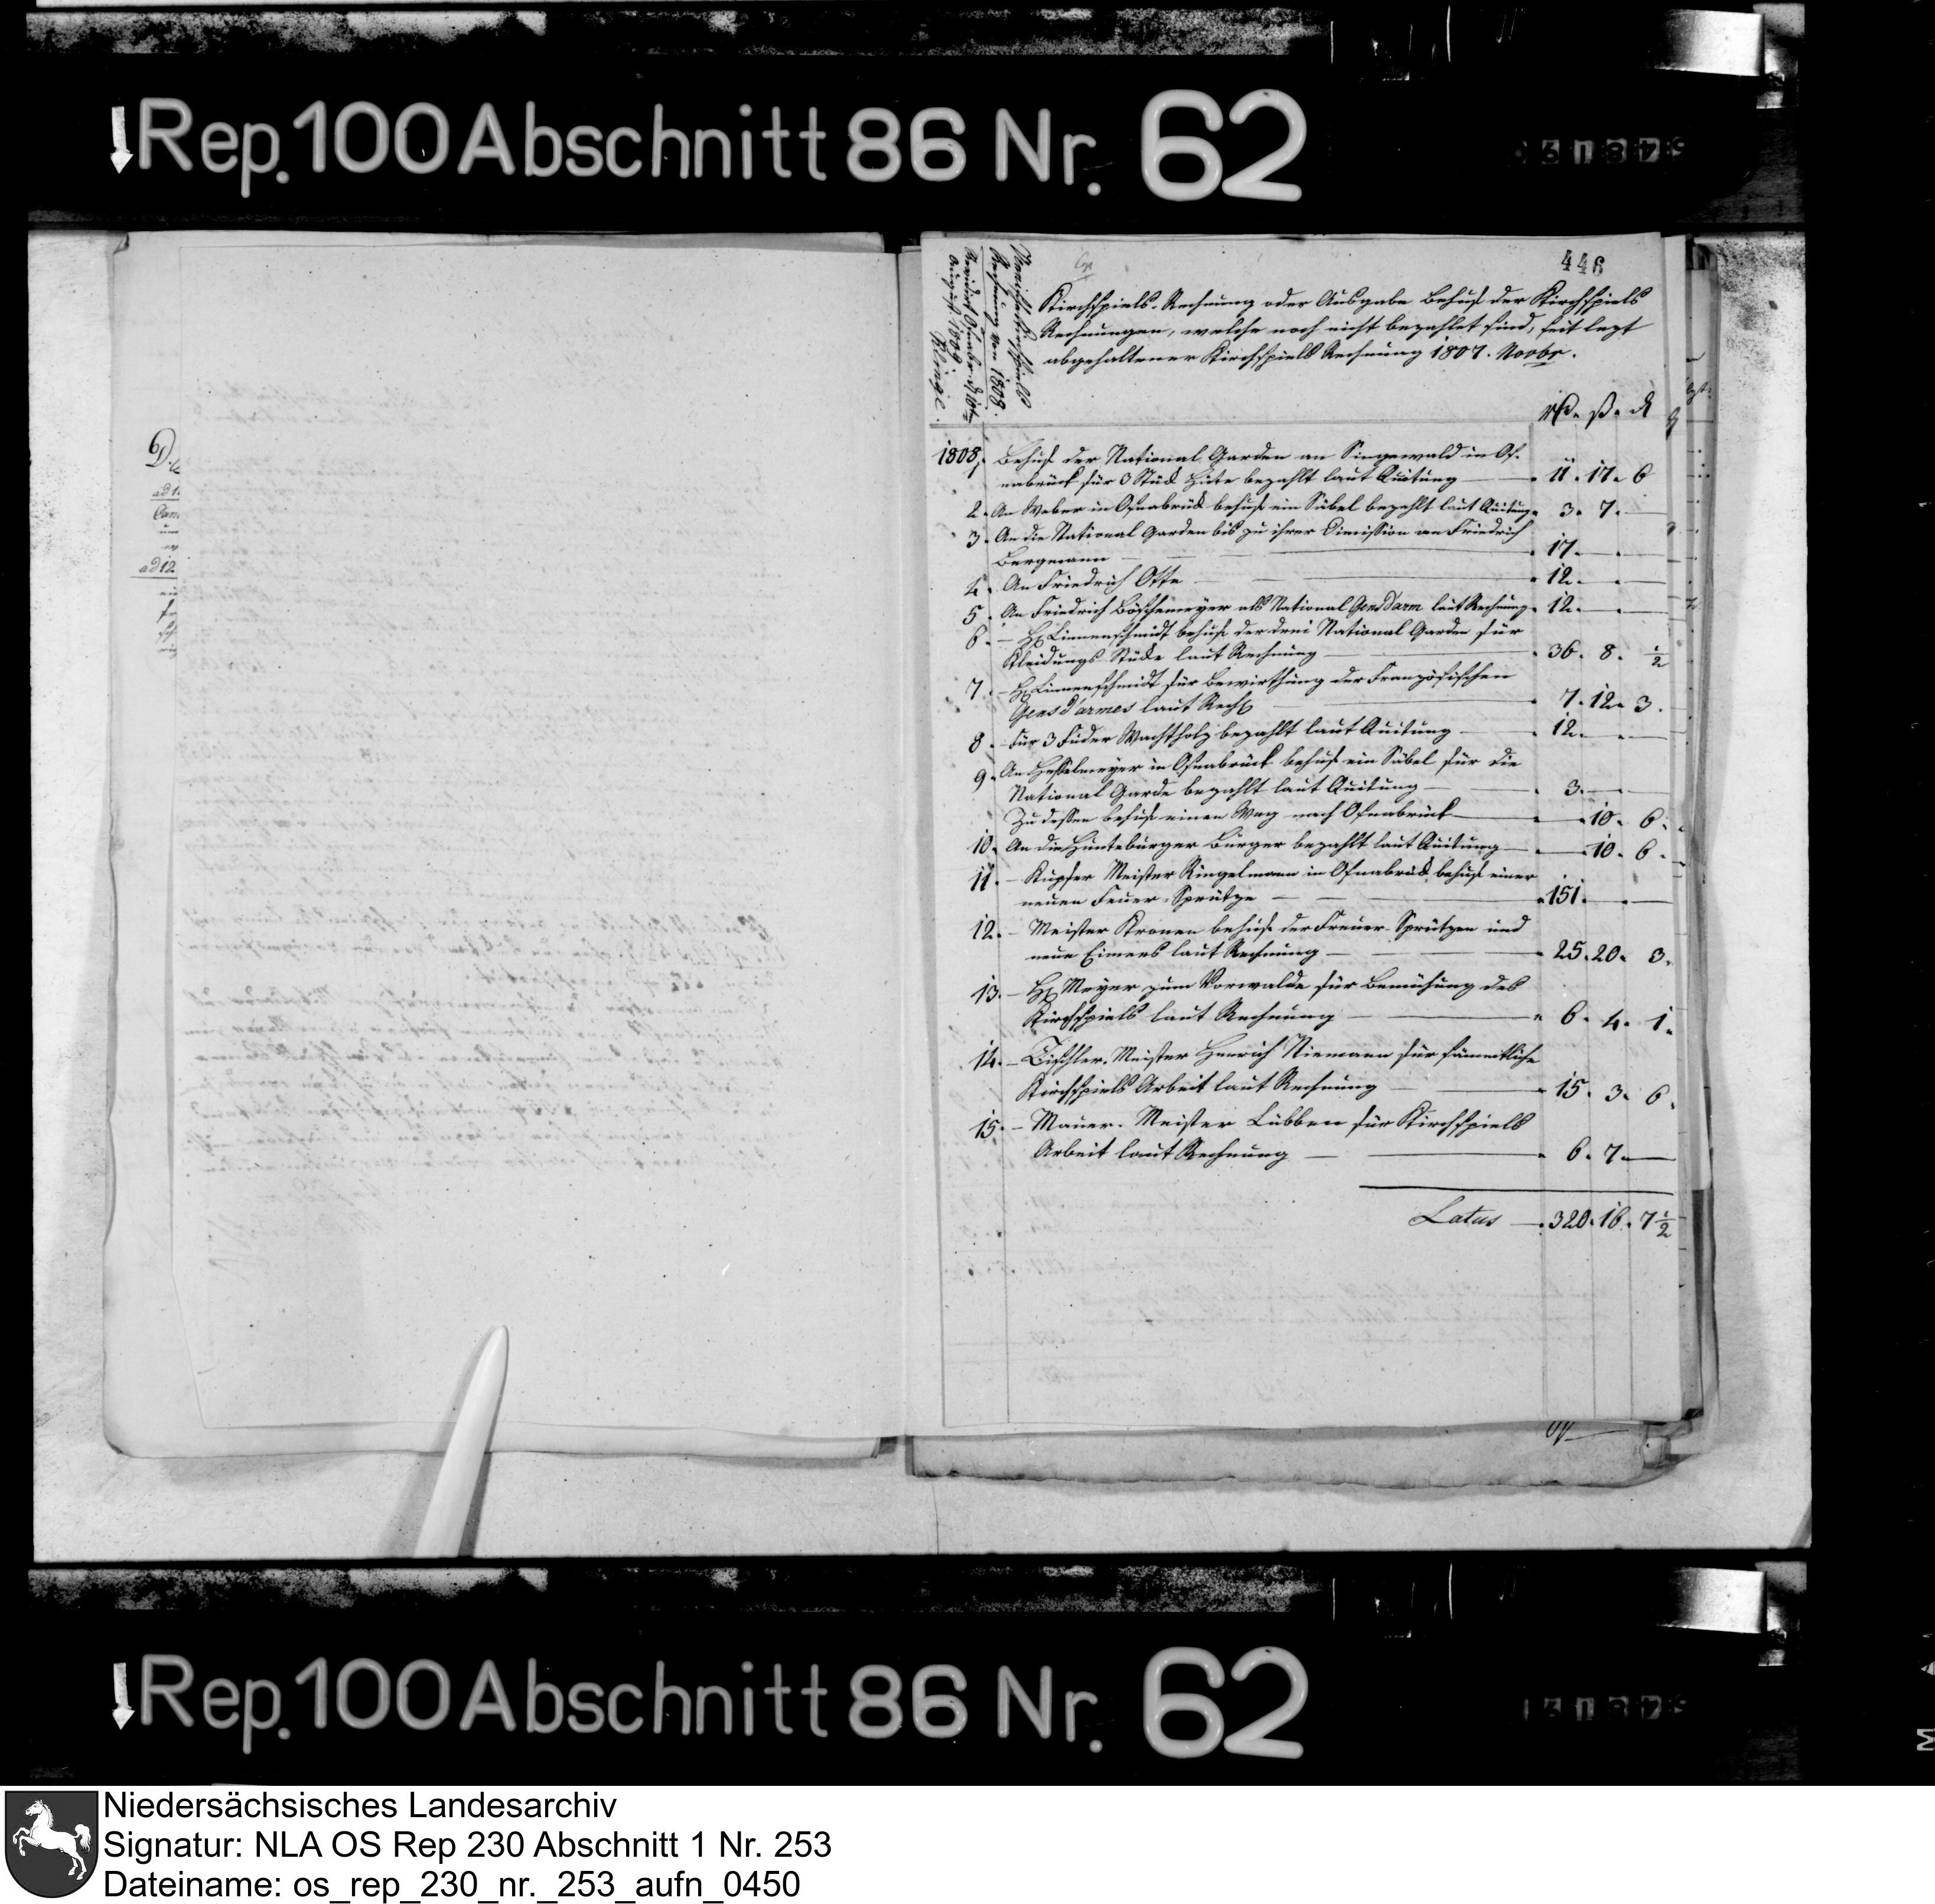 Rep. 100 Abschnitt 86 Nr. 62
446
Kirchspiels-Rechnung oder Ausgabe behuf der Kirchspiels
Rechnungen, welche noch nicht bezahlet sind, seit lezt
abgehaltener Kirchspiels Rechnung 1807. Novbr.
Rechnung von 1808.
August 1809
Klinge.
D.
ad 1.
ad 12
1808,. Behuf der National Garden an Singewald in Os-
nabrück für 3 Stück Hüte bezahlt laut Quitung — 11. 17. 6
2. An Weber in Osnabrück behuf ein Säbel bezahlt laut Quitung. 3. 7. —
3. An die National Garden bis zu ihrer Dimission an Friedrich
Bergmann — 17. — . —
4. An Friedrich Otte — 12. — . —
5. An Friedrich Böschemeyer als National Gensd'arm laut Rechnung. 12. — . —
6. — H. Linnenschmidt behuf der drei National Garden für
Kleidungs-Stücke laut Rechnung — 36. 8. ½
7. — H. Linnenschmidt für Bewirthung der Französischen
Gensd'armes laut Rech — 7. 12. 3.
8. — für 3 Fuder Wachtholz bezahlt laut Quitung — 12. — . —
9. An Hesselmeyer in Osnabrück behuf ein Säbel für die
National Garde bezahlt laut Quitung — 3. — . —
Zu dessen behuf einen Weg nach Osnabrück — . 10. 6.
10. An die Hunteburger Bürger bezahlt laut Quitung — . 10. 6.
11. — Kupfer Meister Ringelmann in Osnabrück behuf einer
neuen Feuer-Sprütze — 151. — . —
12. — Meister Kronen behuf der Feuer-Sprützen und
neue Eimers laut Rechnung — 25. 20. 3.
13. — H. Meyer zum Vorwalde für Bemühung des
Kirchspiels laut Rechnung — 6. 4. 1.
14. — Tischler-Meister Henrich Niemann für sämmtliche
Kirchspiels Arbeit laut Rechnung — 15. 3. 6.
15. — Mauer-Meister Lübben für Kirchspiels
Arbeit laut Rechnung — 6. 7. —
Latus — 320. 16. 7½
Rep. 100 Abschnitt 86 Nr. 62
Niedersächsisches Landesarchiv
Signatur: NLA OS Rep 230 Abschnitt 1 Nr. 253
Dateiname: os_rep_230_nr._253_aufn_0450